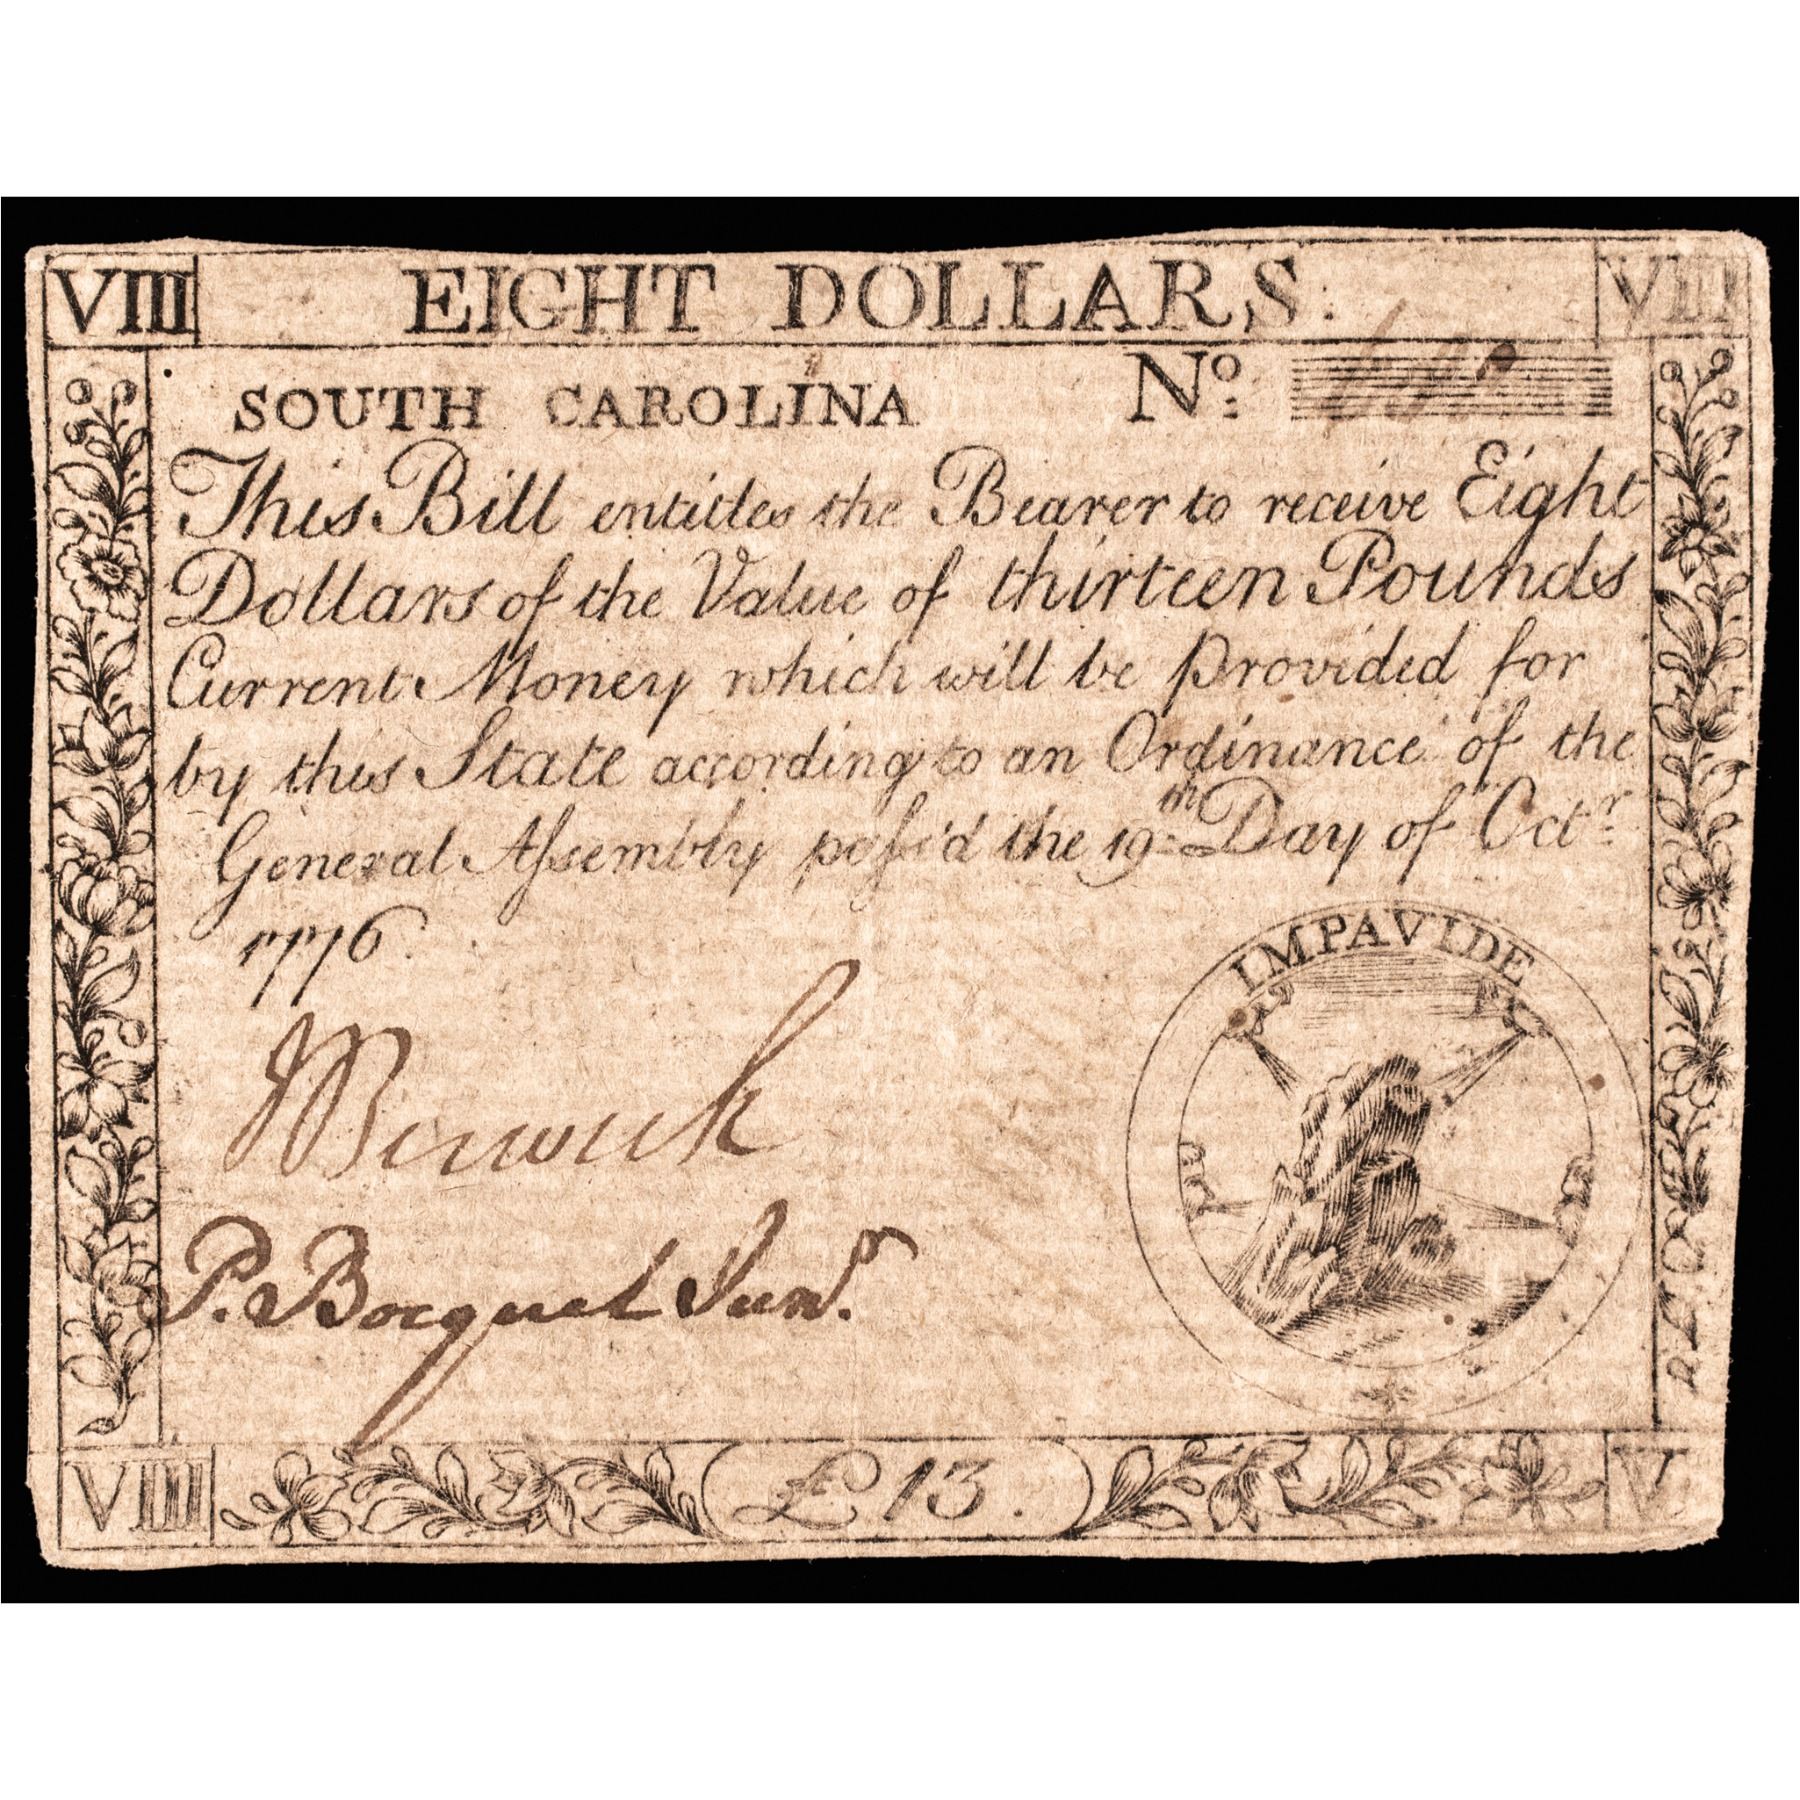 VIII EIGHT DOLLARS: VIII
SOUTH CAROLINA No:
This Bill entitles the Bearer to receive Eight
Dollars of the Value of thirteen Pounds
Current Money which will be provided for
by this State according to an Ordinance of the
General Aſsembly paſs'd the 19th Day of Octr
1776.
IMPAVIDE
P. Bocquet Junr.
VIII £13. V